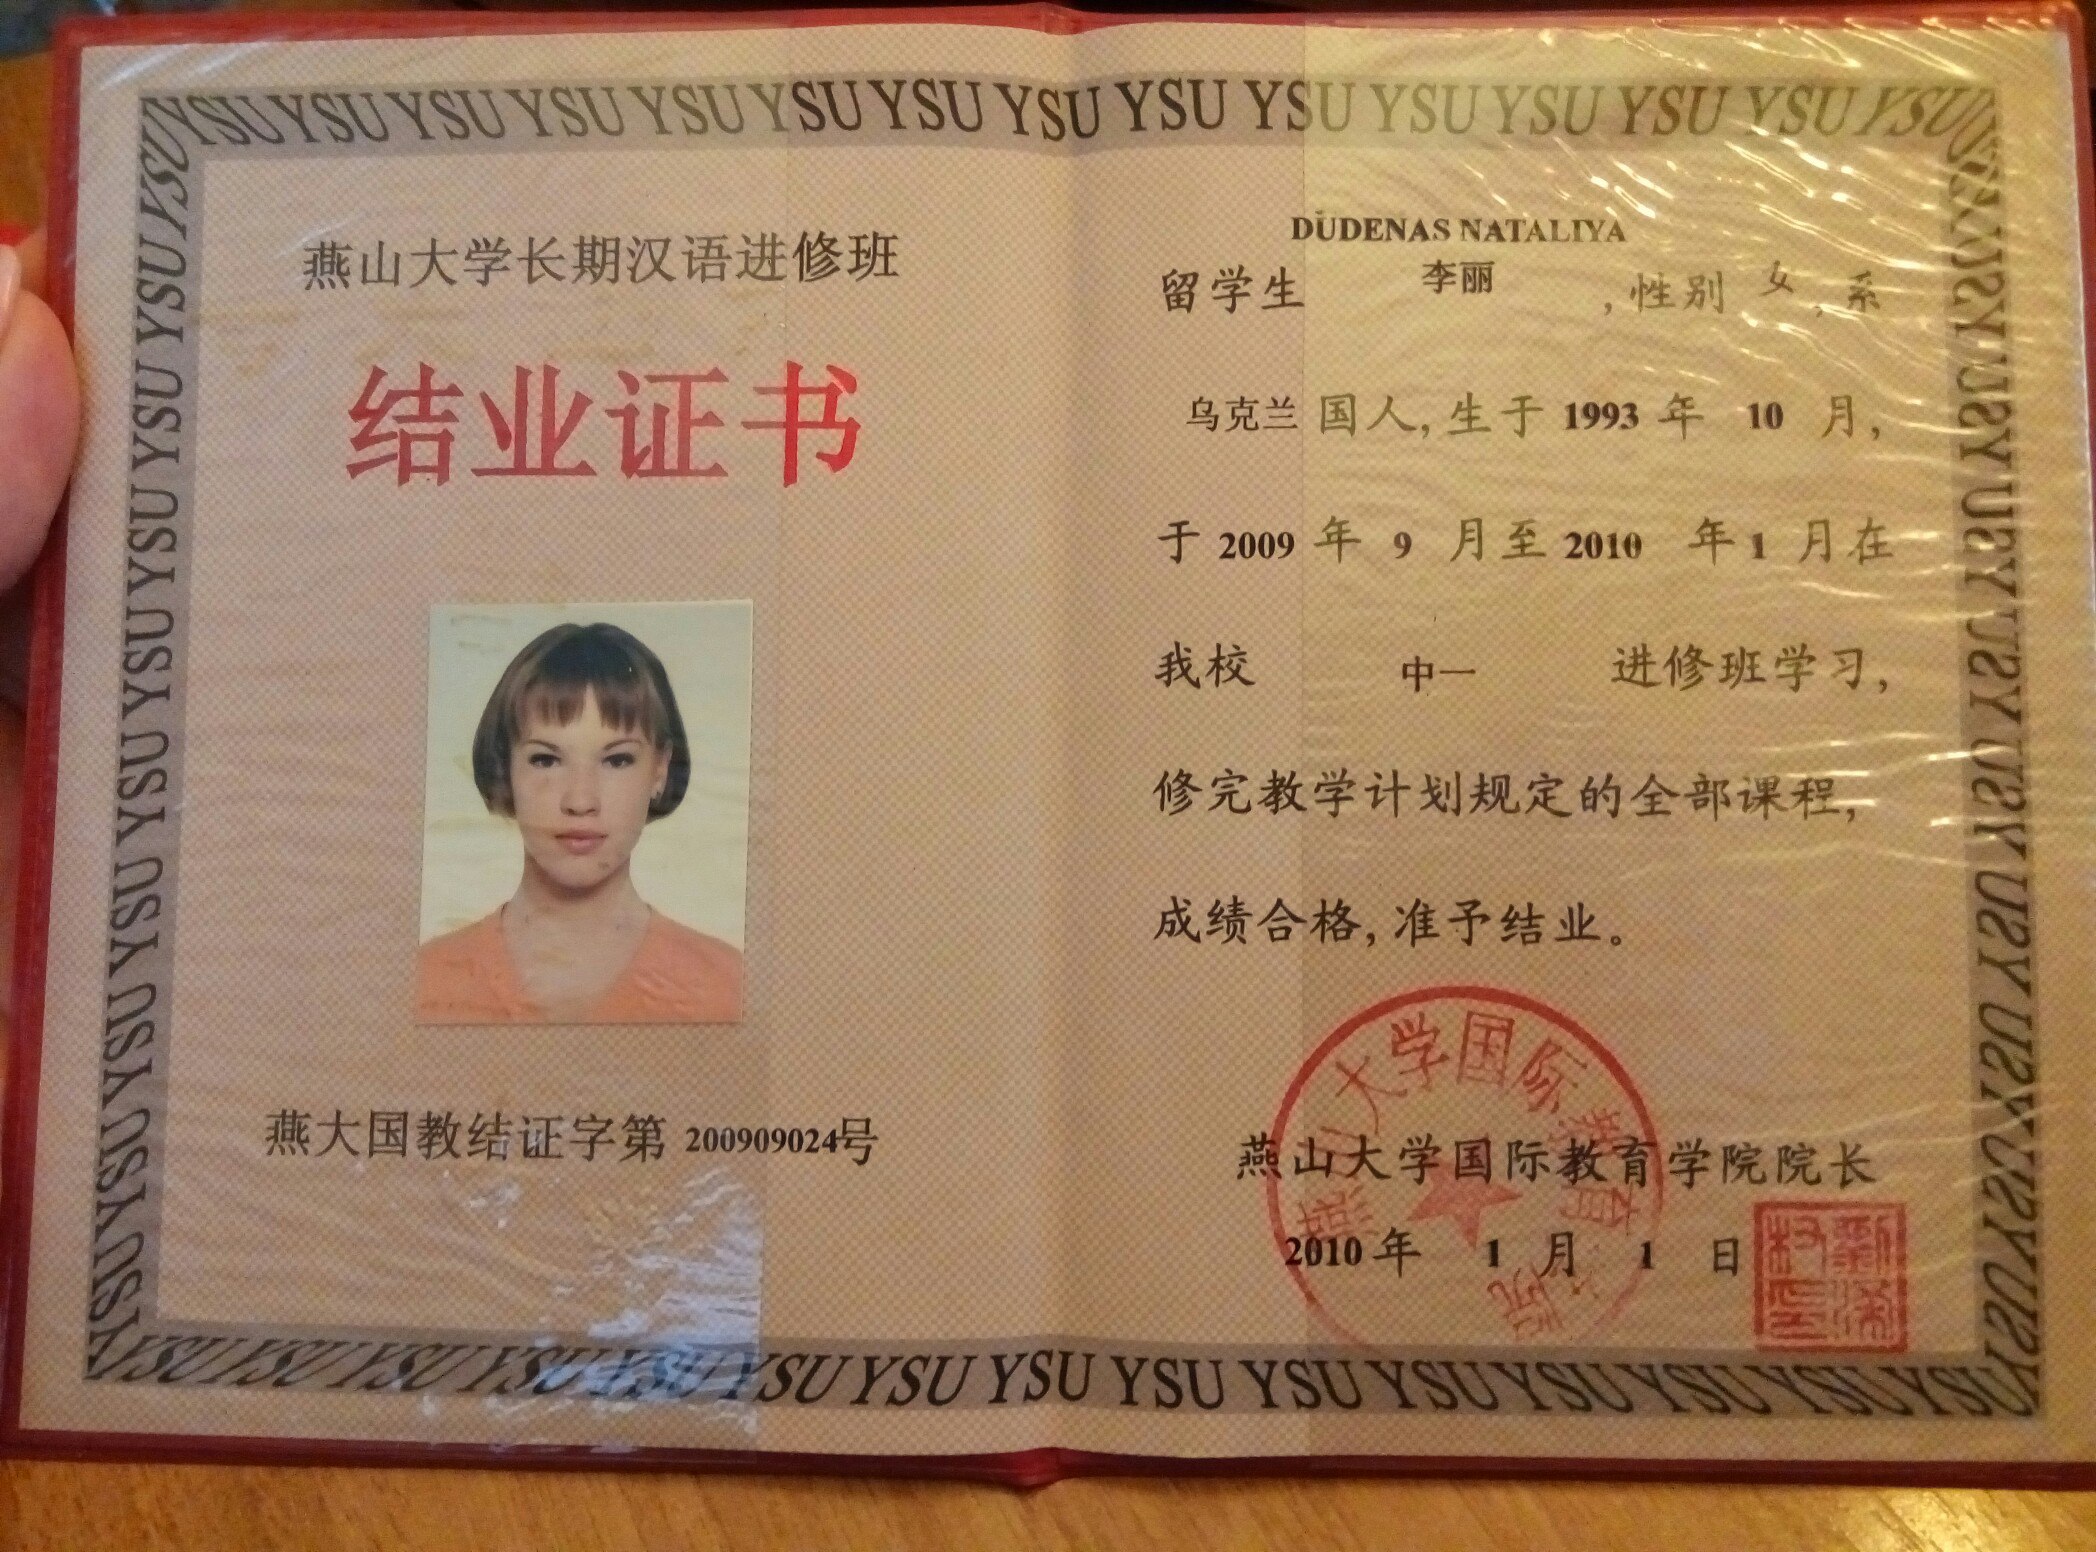 YSU YSU YSU YSU YSU YSU YSU YSU YSU YSU YSU YSU YSU YSU YSU
燕山大学长期汉语进修班
结业证书
燕大国教结证字第 200909024号
DUDENAS NATALIYA
留学生 李丽 ,性别 女 ,系
乌克兰 国人,生于 1993 年 10 月,
于 2009 年 9 月至 2010 年 1 月在
我校 中一 进修班学习,
修完教学计划规定的全部课程,
成绩合格,准予结业。
燕山大学国际教育学院院长
2010 年 1 月 1 日
燕山大学国际教育学院